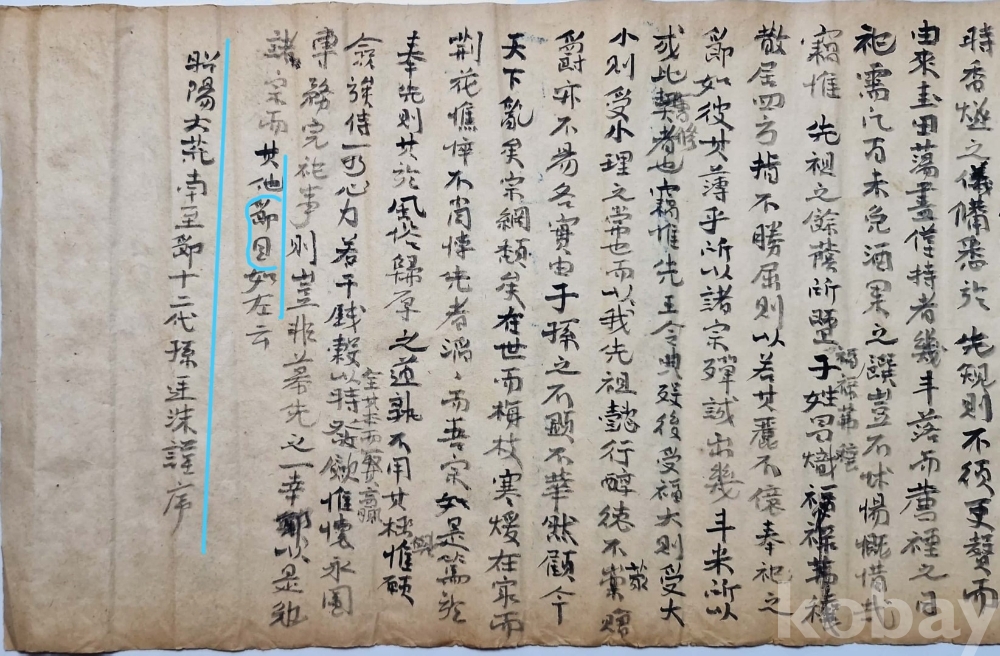 時香燧之儀備悉於 先規則不須更贅而
由來圭田蕩盡僅持者幾斗落而薦禋之日
祀需汔百未免酒果之饌豈不怵惕慨惜哉
竊惟 先祖之餘蔭所曁子姓昌熾福祿蕃穰
福祿蕃
散居四方指不勝屈則以若其麗不億奉祀之
節如彼其薄乎所以諸宗殫誠出幾斗米所以
或此契者也竊惟先王令典歿後受福大則受大
修
小則受小理之常也而以我先祖懿行醇德不蒙贈
爵亦不易名實由子孫之不顯不華然顧今
天下亂矣宗綱頹矣在世而梅杖寒煖在家而
荊花憔悴不肖悖先者滔〻而吾宗如是篤於
奉先則其於風俗歸厚之道孰不用其極惟願
僉族侍可心力若干錢穀以時斂惟懷永圖
至某而
贏
專務完祀事則豈非慕先之一幸耶以是
諸宗而其他節目如左云
昭陽大荒南至節十二代孫 洙謹序
kobay